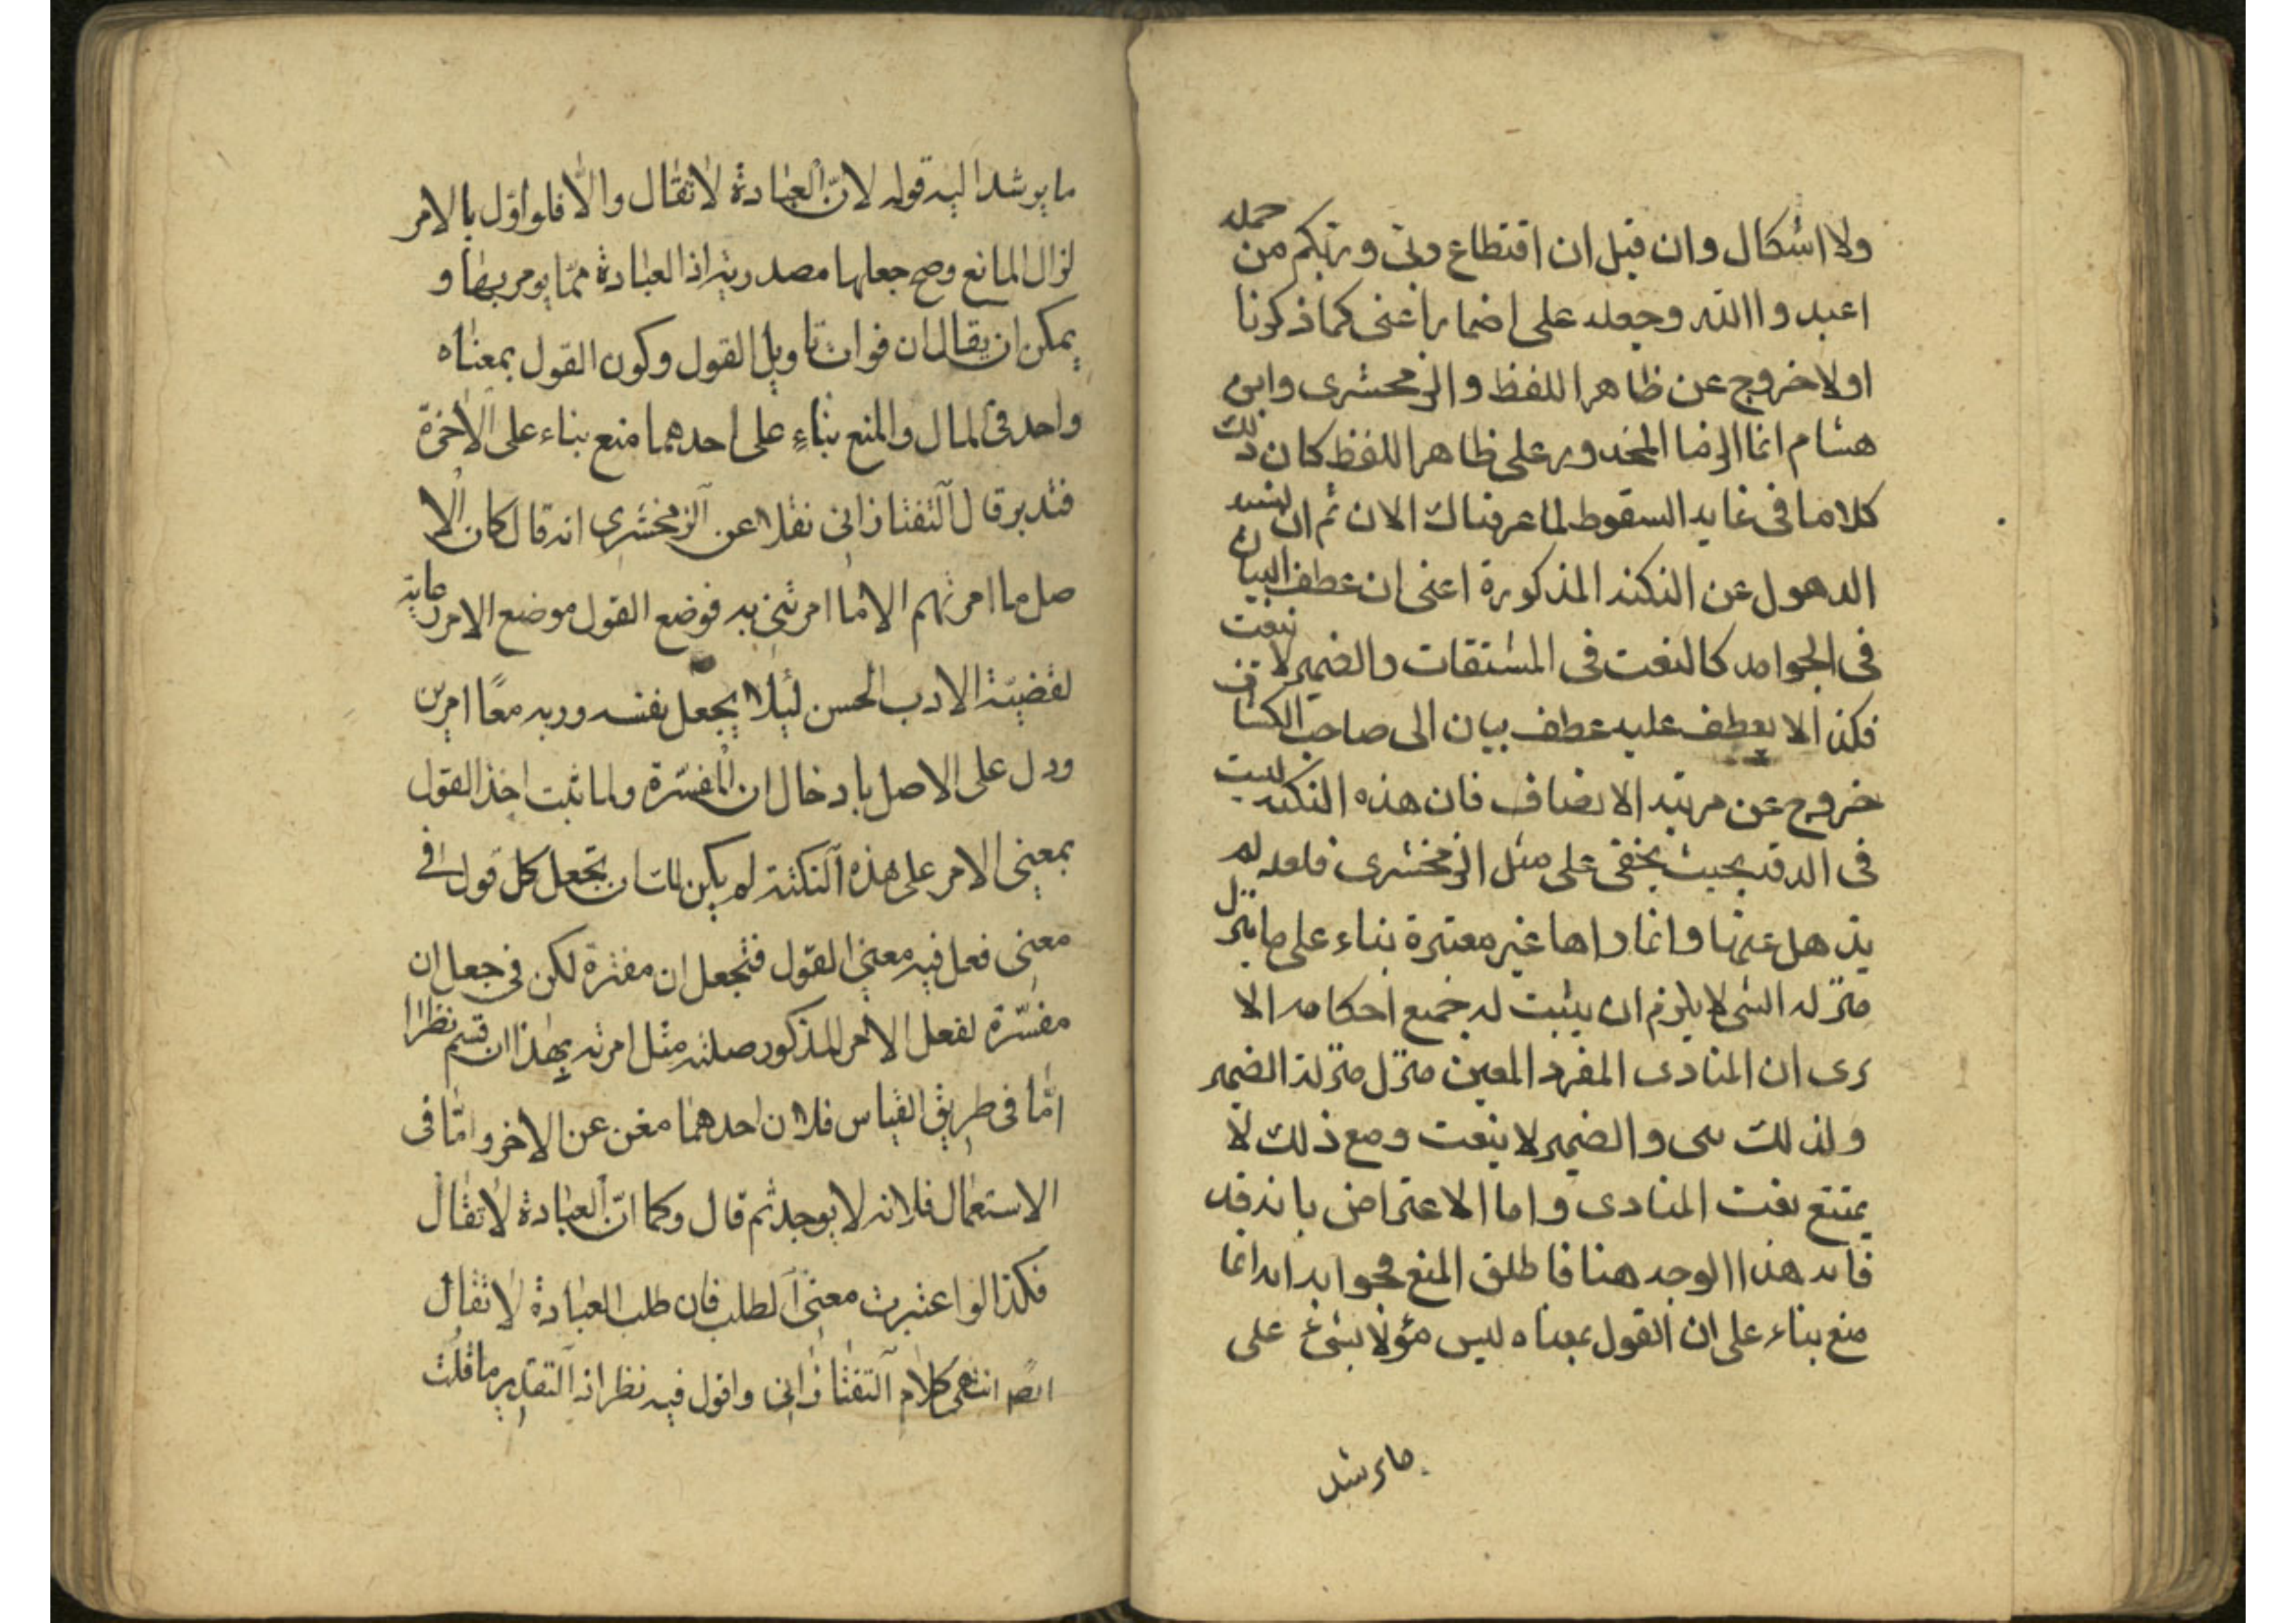 ولا اشكال وان قيل ان اقتطاع ربى وربكم من جملة
اعبدوا الله وجعله على اضمار اعنى كما ذكرنا
اولا خروج عن ظاهر اللفظ والزمخشرى وابن
هشام انما الزما المحذور على ظاهر اللفظ كان ذلك
كلاما فى غايه السقوط لما عرفناك الان ثم ان نسبه
الدهول عن النكته المذكورة اعنى ان عطف البيان
فى الجوامد كالنعت فى المشتقات والضمير لا ينعت
فكذا لا يعطف عليه عطف بيان الى صاحب الكشاف
خروج عن مرتبه الانصاف فان هذه النكته ليست
فى الدقه بحيث يخفى على مثل الزمخشرى فلعله لم
يذهل عنها وانما راها غير معتبرة بناء على ما ينزل
منزله الشى لا يلزم ان يثبت له جميع احكامه الا
رى ان المنادى المفرد المعين منزل منزلة الضمير
ولذلك بنى والضمير لا ينعت ومع ذلك لا
يمتنع نعت المنادى واما الاعتراض بانه قد
فاته هذا الوجه هنا فاطلق المنع فجوابه انه انما
منع بناء على ان القول بمعناه ليس مؤلا بشئ على
ما يرشد
ما يرشد اليه قوله لانّ العبادة لا تقال والّا فلو اوّل بالامر
لزال المانع وصح جعلها مصدرية اذ العبادة ممّا يومر بها و
يمكن ان يقال ان فوات تاويل القول وكون القول بمعناه
واحد فى المال والمنع بناء على احدهما منع بناء على الاخرة
فتدبر قال التفتازانى نقلا عن الزمخشرى انه قال كان الا
صل ما امرتهم الا ما امرتنى به فوضع القول موضع الامر رعاية
لقضيّة الادب الحسن لئلا يجعل نفسه وربه معًا امرين
ودل على الاصل بادخال ان المفسّرة ولما ثبت اخذ القول
بمعنى الامر على هذه النكتة لم يكن لك ان تجعل كل قول فى
معنى فعل فيه معنى القول فتجعل ان مفسّرة لكن فى جعل ان
مفسّرة لفعل الامر المذكور صلته مثل امرته بهذا ان قسم نظرا
امّا فى طريق القياس فلان احدهما مغن عن الاخر وامّا فى
الاستعمال فلانه لا يوجد ثم قال وكما انّ العبادة لا تقال
فكذا لو اعتبرت معنى الطلب فان طلب العبادة لا تقال
انتهى كلام التفتازانى واقول فيه نظر اذ التقدير ما قلت